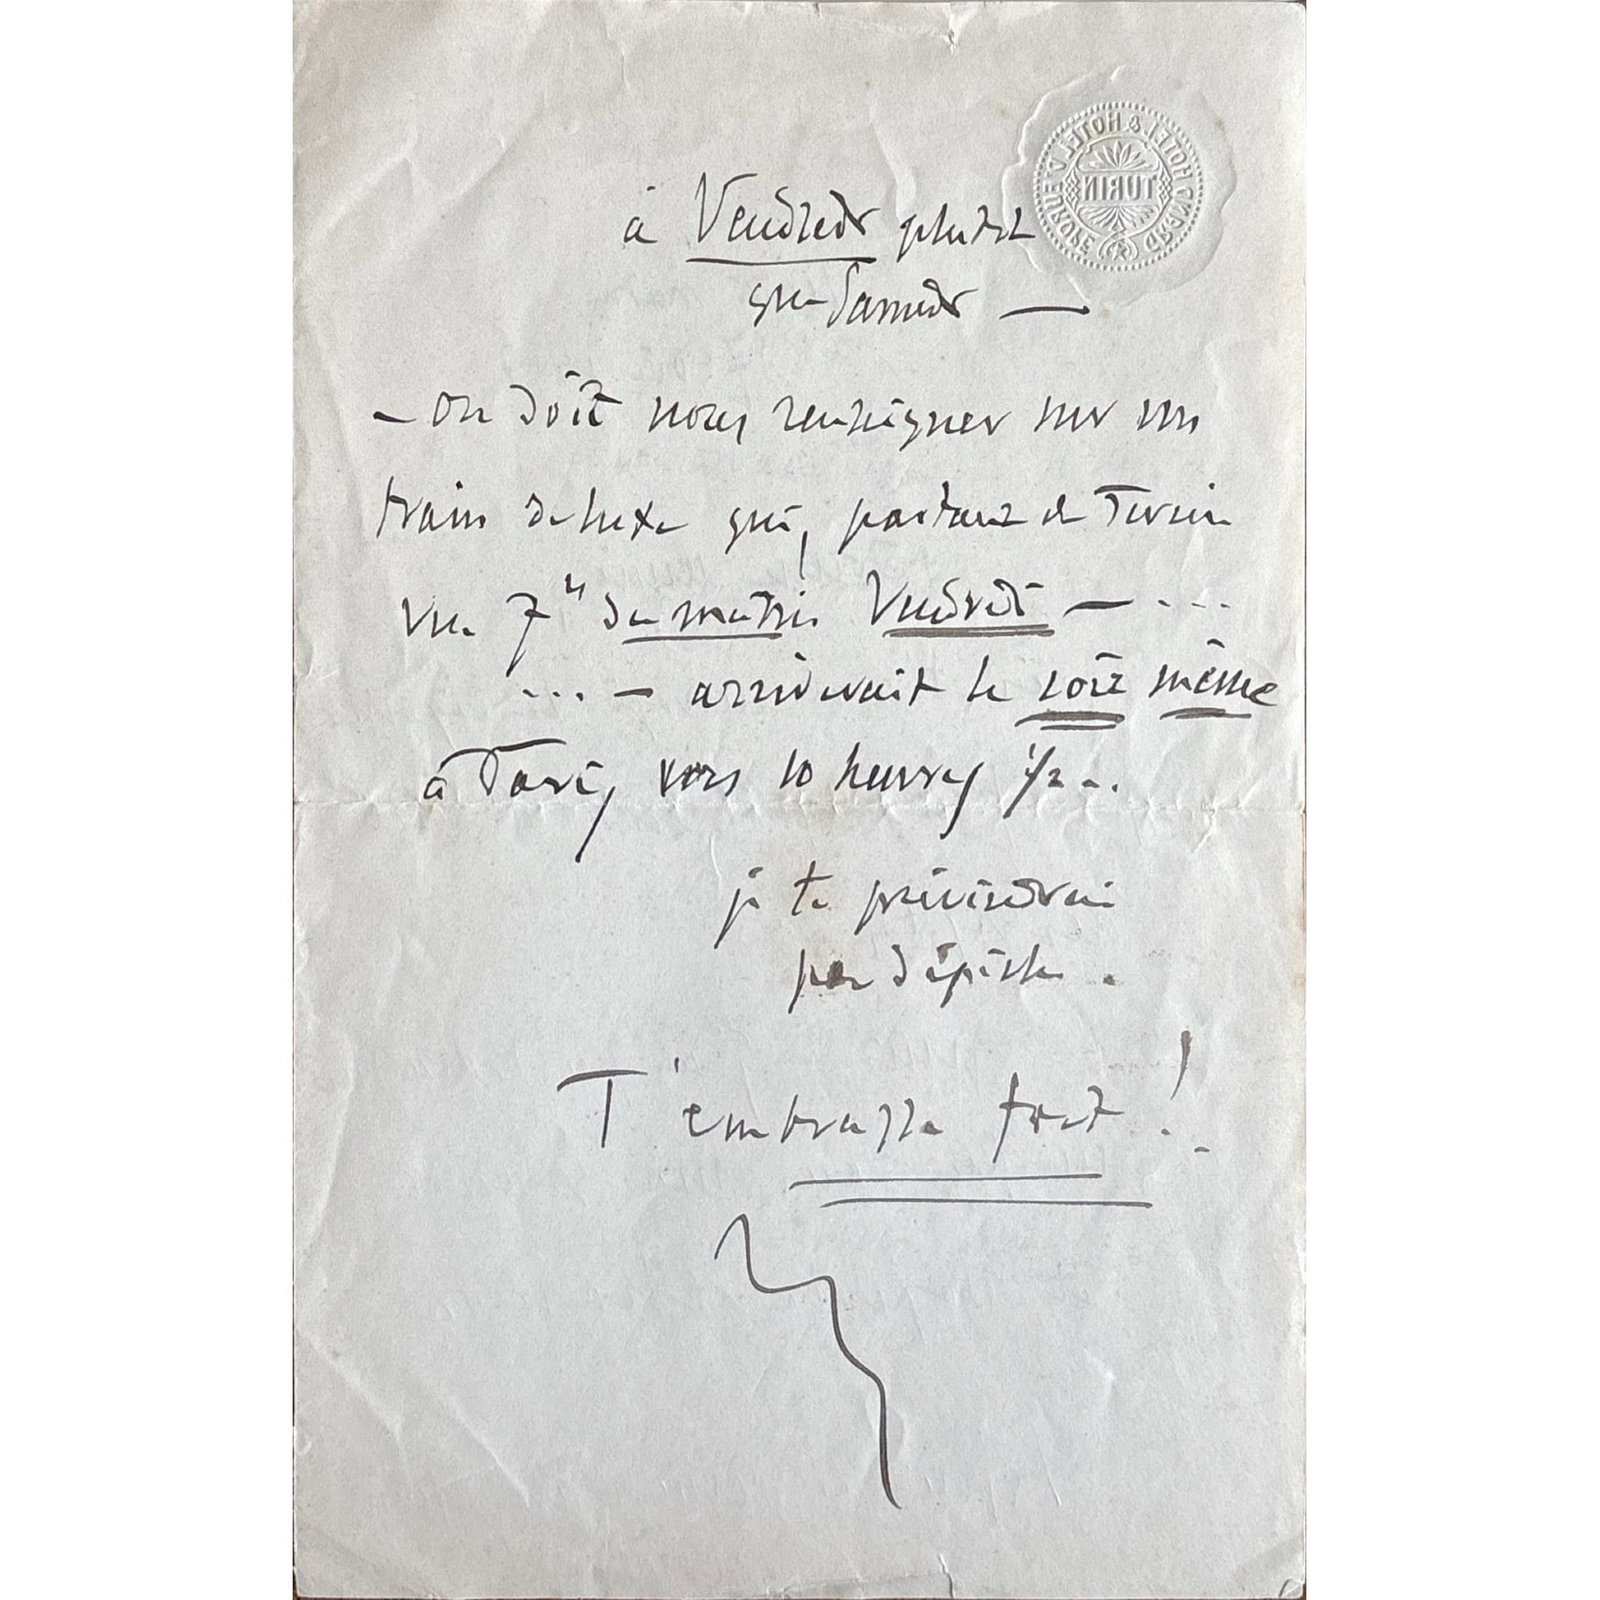 GRAND HOTEL & HOTEL D'EUROPE
TURIN
à Vendredi plutôt
que Samedi —
— on doit nous renseigner sur un
train de luxe qui, partant de Turin
vers 7h du matin Vendredi — ...
... — arriverait le soir même
à Paris, vers 10 heures 1/2 -.
je te préviendrai
par dépêche .
T'embrasse fort !